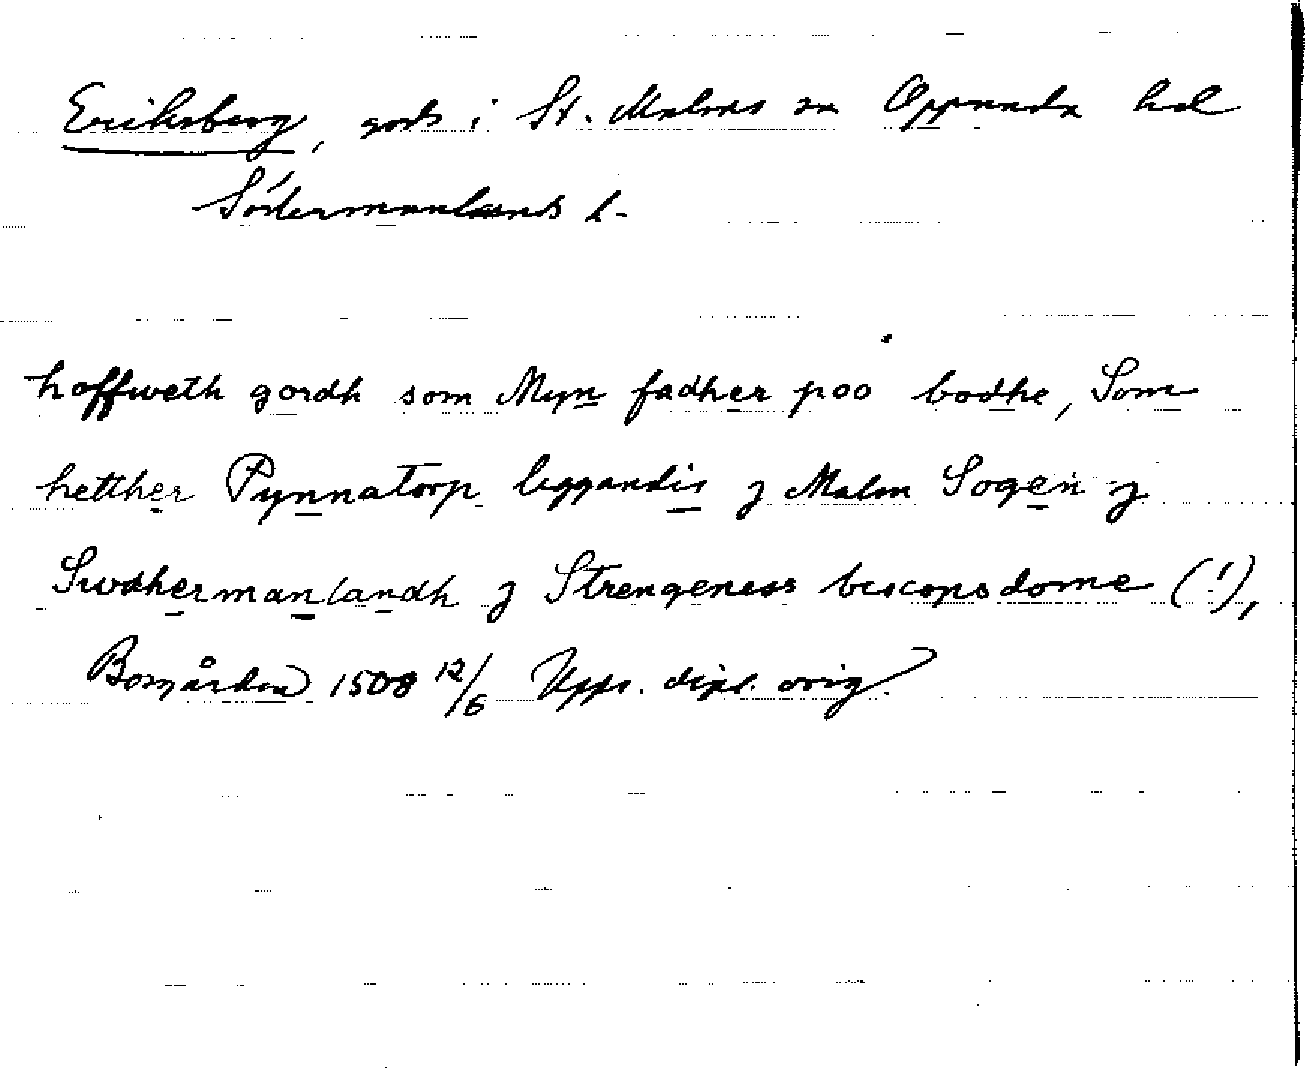 Eriksberg, gods i St. Malms sn Oppunda hd
Södermanlands l.
hoffweth gordh som Myn fadher poo bodhe, Som
hetther Pynnatorp leggandis j Malm Sogen j
Swdhermanlandh j Strengeness biscopsdome (!),
Borgården 1508 12/6 Upps. dipl. orig.